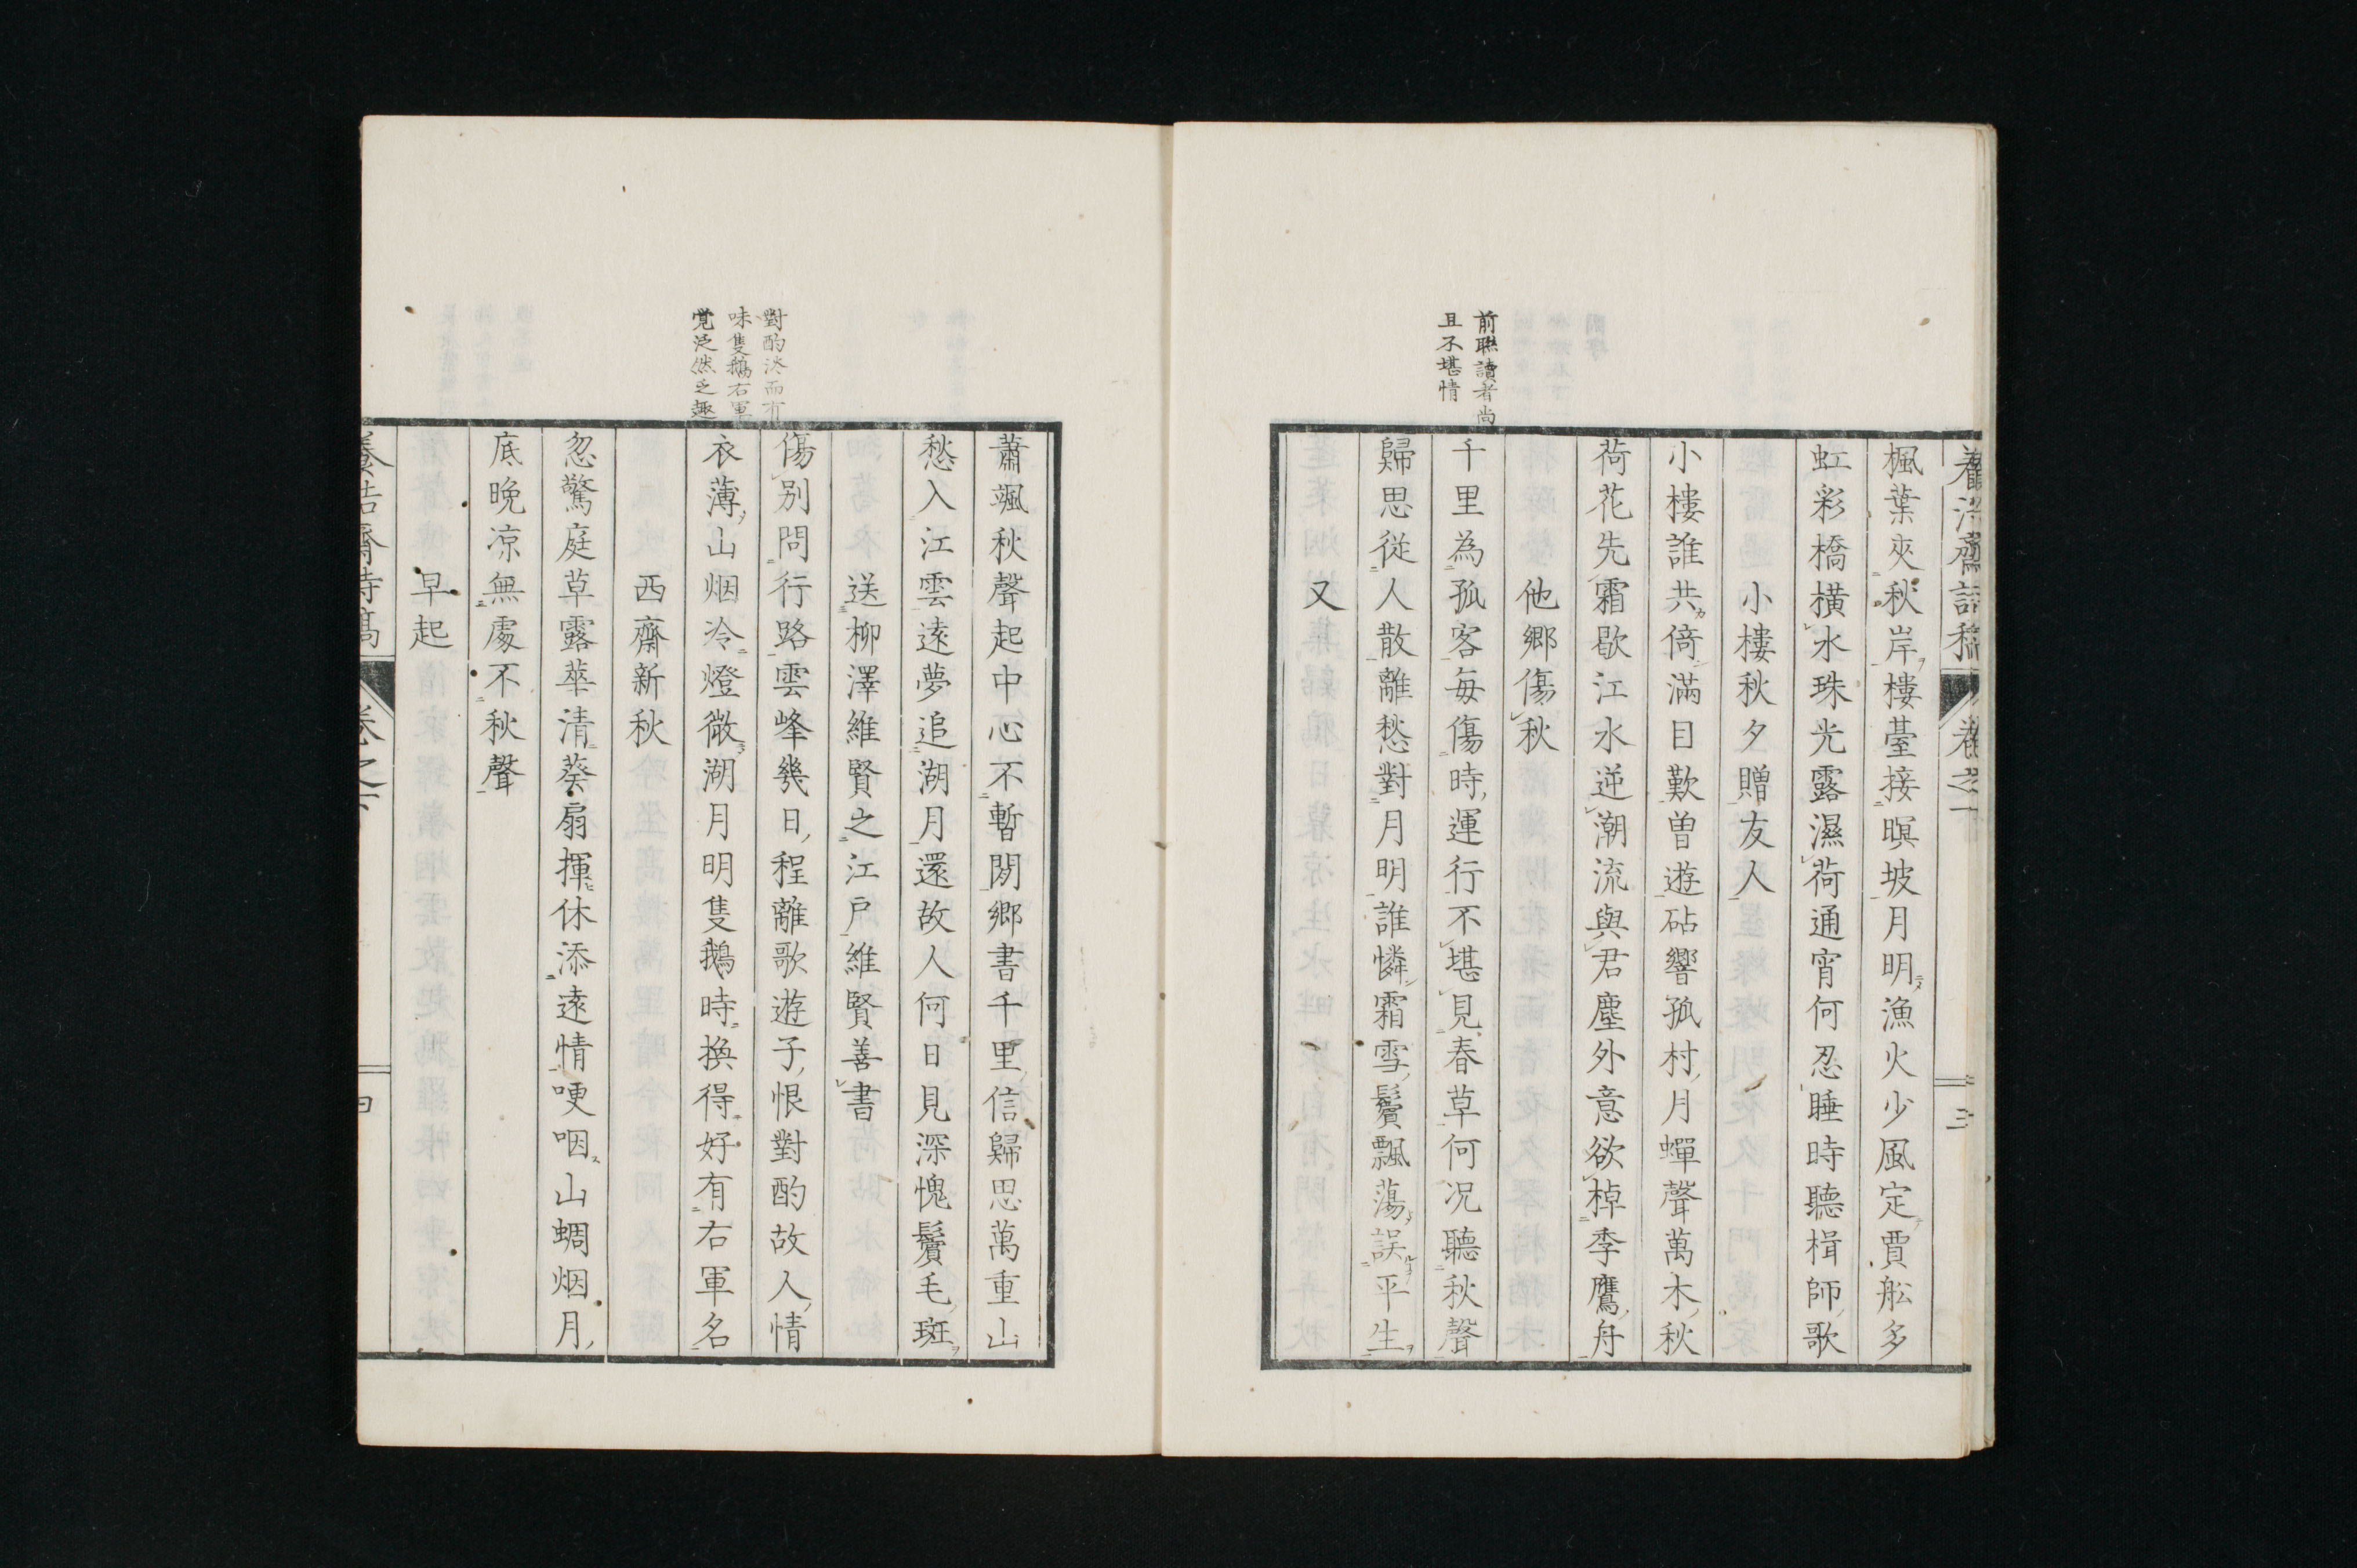 楓葉夾秋岸樓臺接暝坡月明漁火少風定賈舩多
虹彩橋橫水珠光露濕荷通宵何忍睡時聽楫師歌
小樓秋夕贈友人
小樓誰共倚滿目歎曾遊砧響孤村月蟬聲萬木秋
荷花先霜歇江水逆潮流與君塵外意欲棹季鷹舟
他鄉傷秋
前聯讀者尚
且不堪情
千里為孤客每傷時運行不堪見春草何況聽秋聲
歸思從人散離愁對月明誰憐霜雪鬢飄蕩誤平生
又
蕭颯秋聲起中心不暫閒鄉書千里信歸思萬重山
愁入江雲遠夢追湖月還故人何日見深愧鬢毛斑
送柳澤維賢之江戶維賢善書
對酌淡而有
味隻鵝右軍
覚泛然乏趣
傷別問行路雲峰幾日程離歌遊子恨對酌故人情
衣薄山烟冷燈微湖月明隻鵝時換得好有右軍名
西齋新秋
忽驚庭草露華清葵扇揮休添遠情哽咽山蜩烟月
底晚凉無處不秋聲
早起